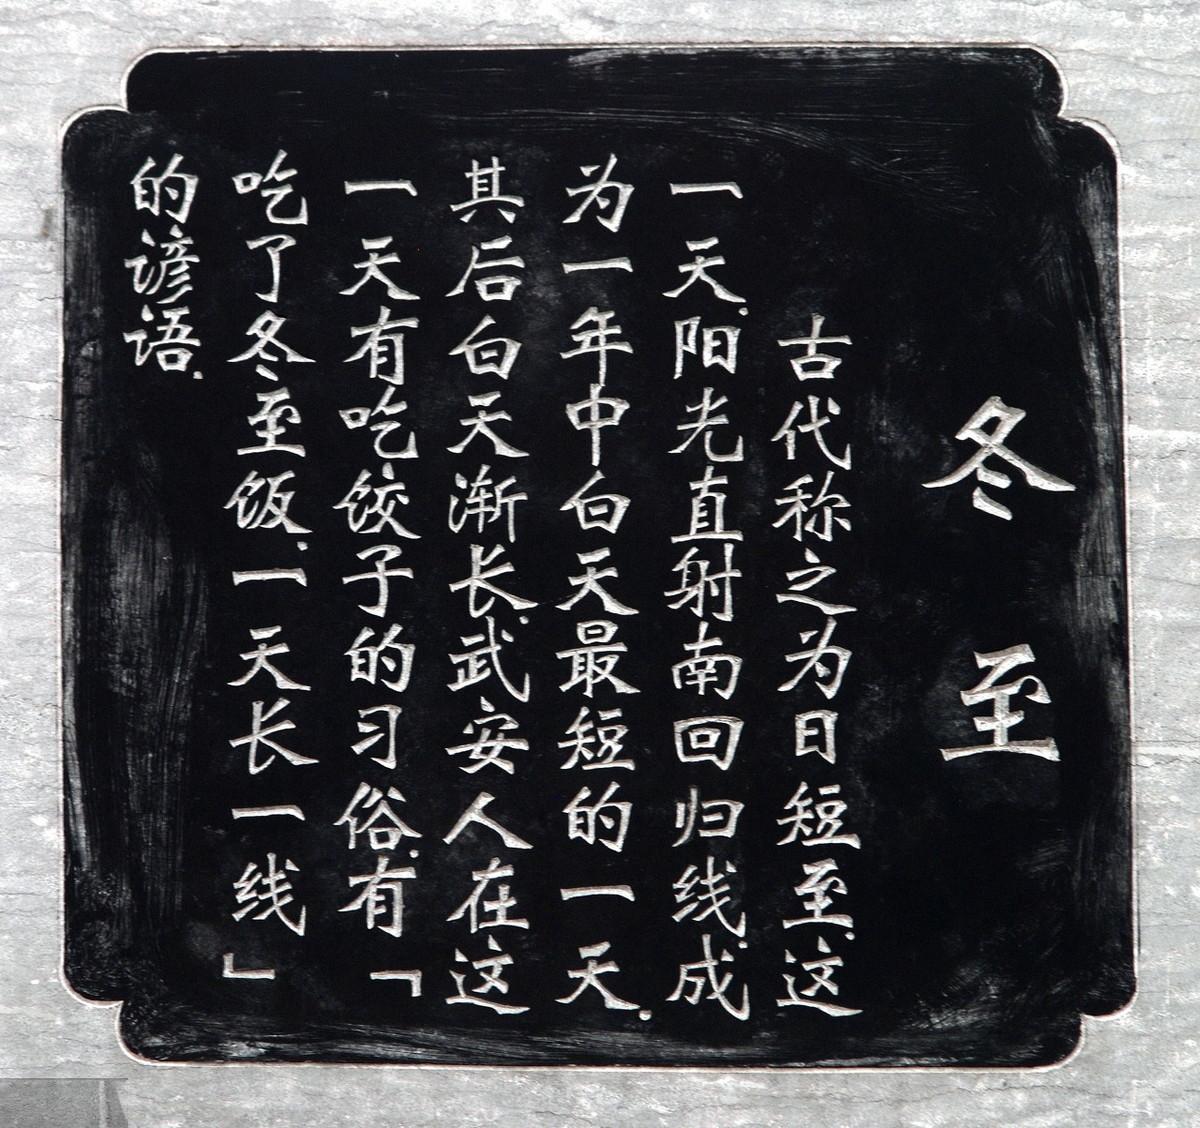 冬至
古代称之为日短至.这
一天.阳光直射南回归线.成
为一年中白天最短的一天.
其后白天渐长.武安人在这
一天有吃饺子的习俗.有「
吃了冬至饭.一天长一线」
的谚语.